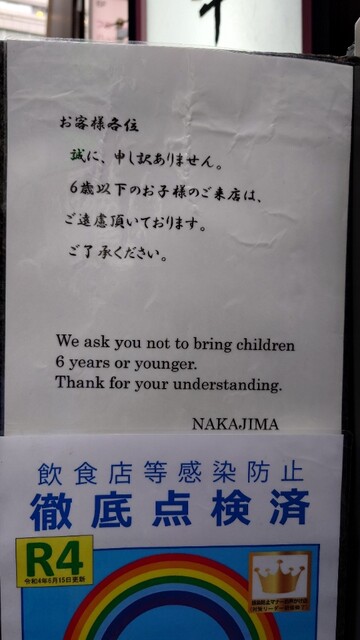 お客様各位
誠に、申し訳ありません。
6歳以下のお子様のご来店は、
ご遠慮頂いております。
ご了承ください。
We ask you not to bring children
6 years or younger.
Thank for your understanding.
NAKAJIMA
飲食店等感染防止
徹底点検済
R4
令和4年8月15日更新